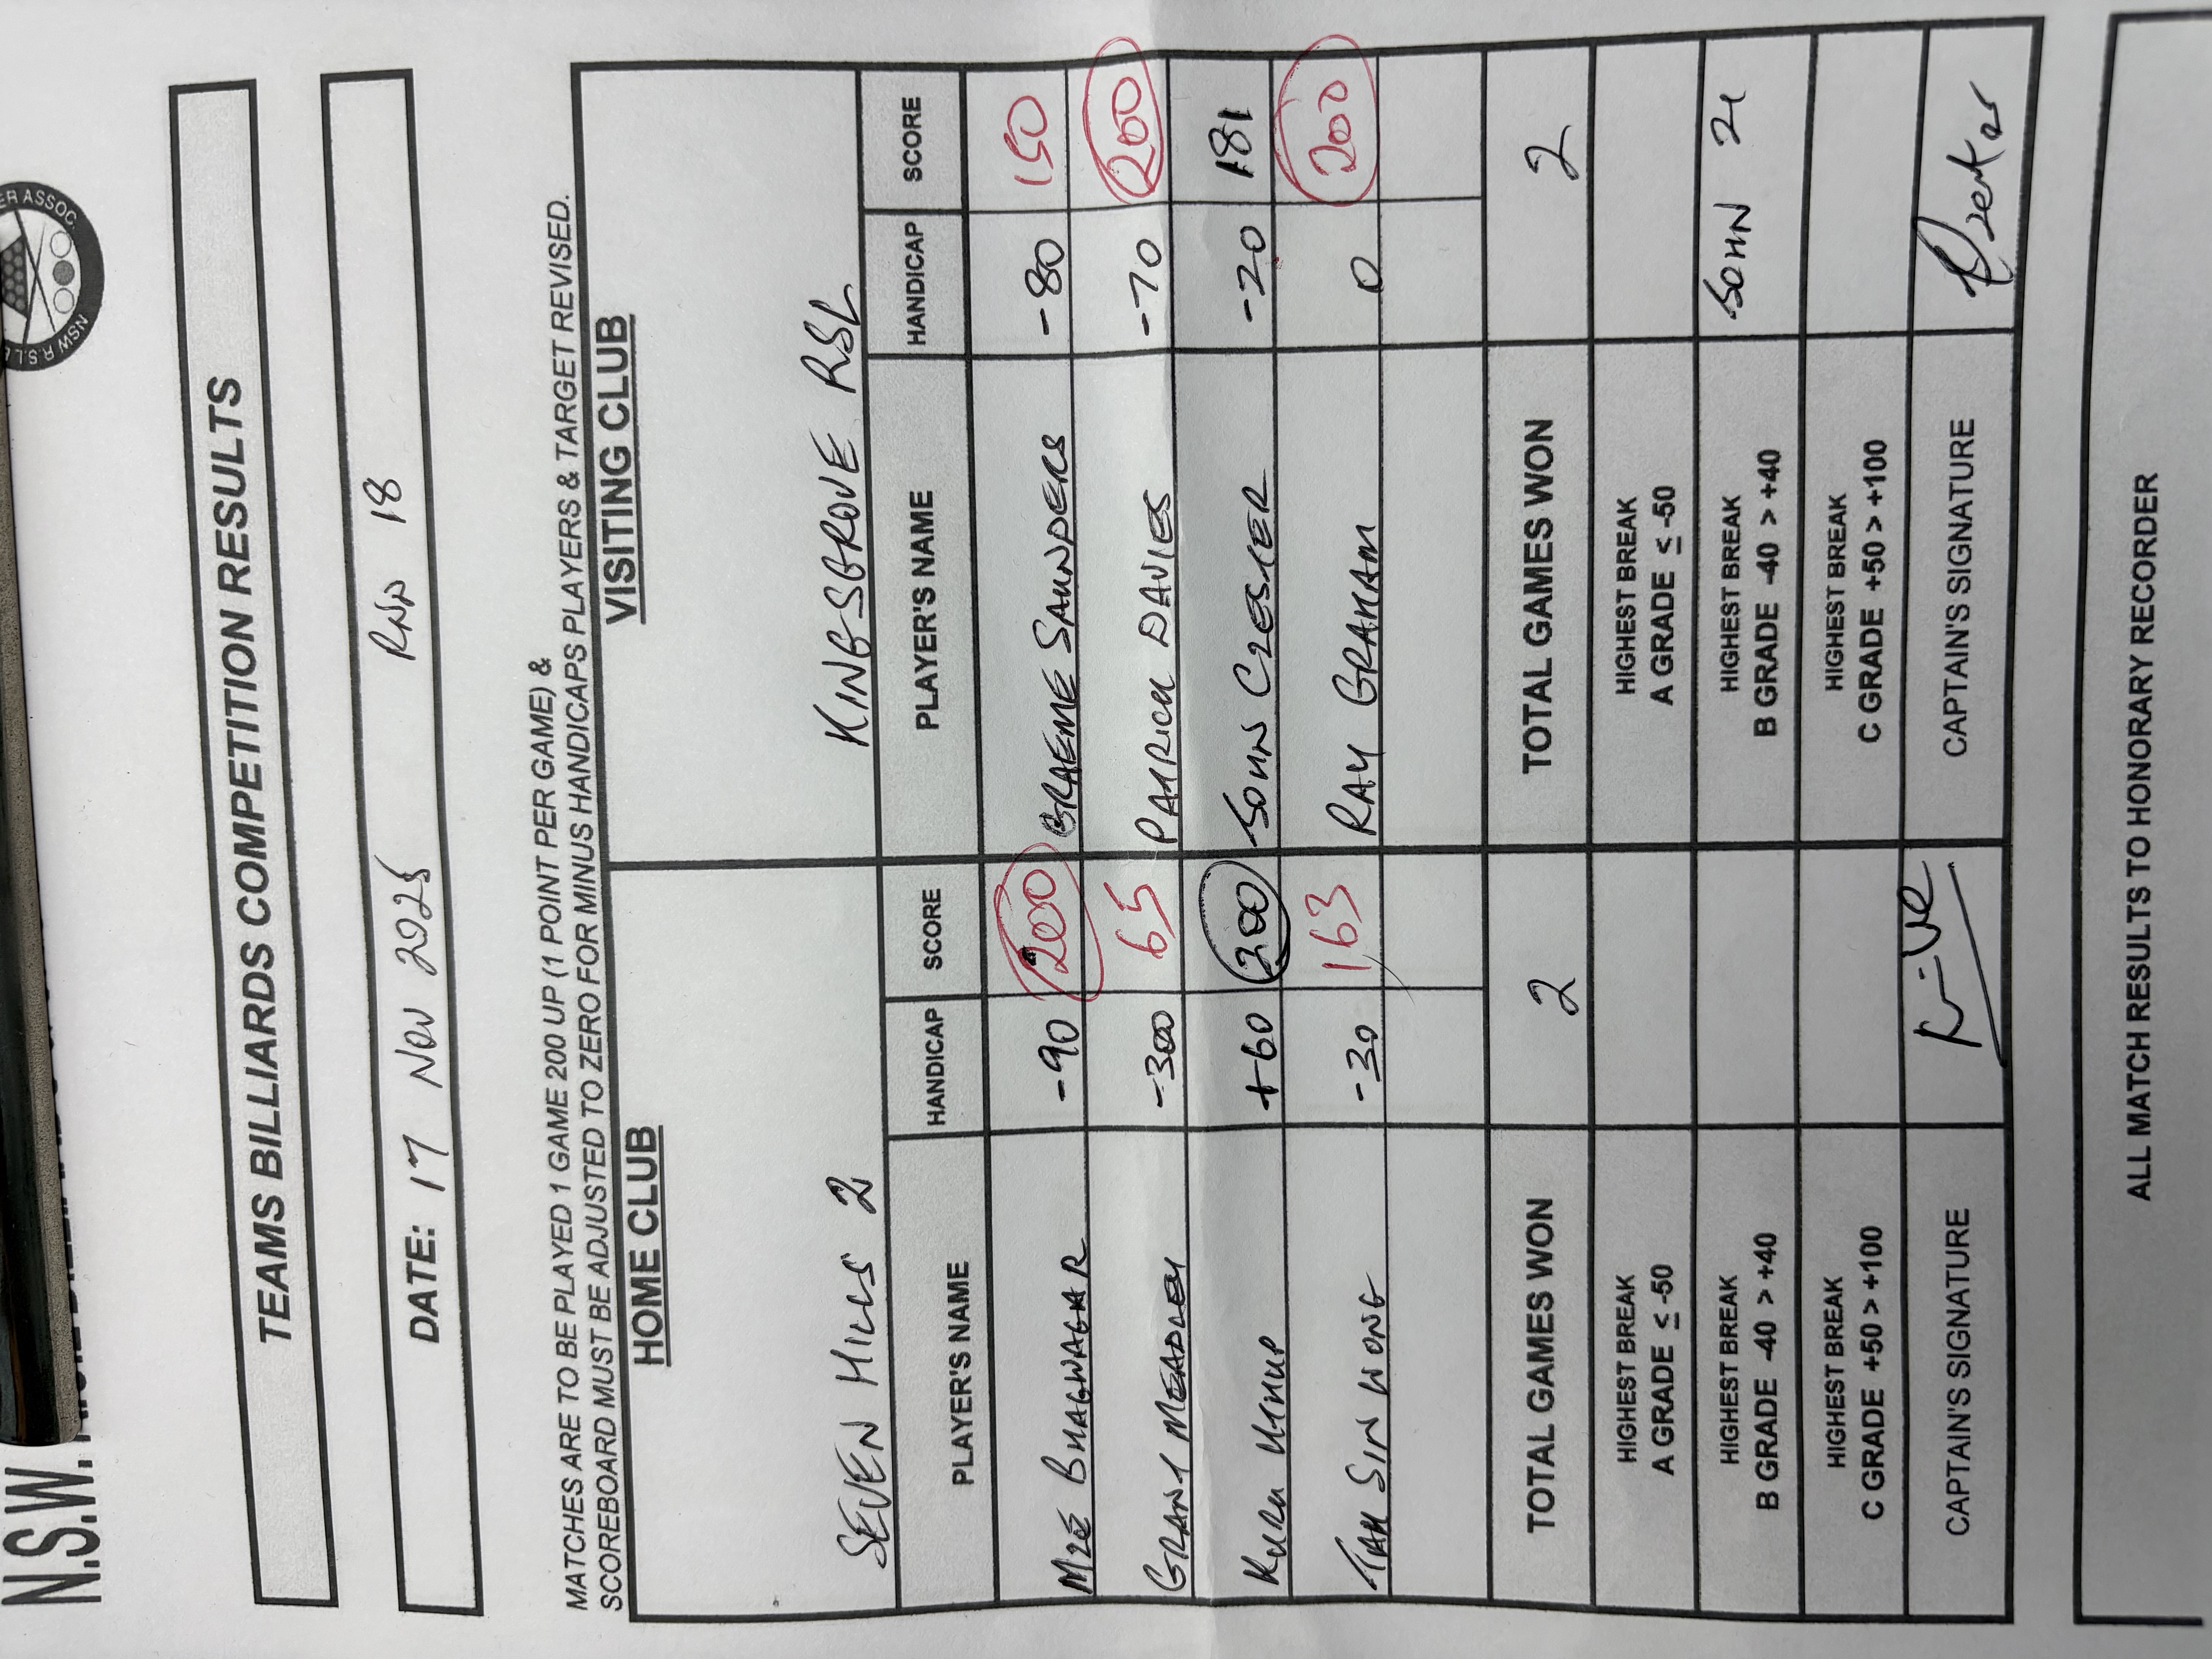 ER ASSOC.
NSW R.S.L
N.S.W.
TEAMS BILLIARDS COMPETITION RESULTS
DATE: 17 NOV 2025 RND 18
MATCHES ARE TO BE PLAYED 1 GAME 200 UP (1 POINT PER GAME) &
SCOREBOARD MUST BE ADJUSTED TO ZERO FOR MINUS HANDICAPS PLAYERS & TARGET REVISED.
HOME CLUB VISITING CLUB
SEVEN HILLS 2 KINGSGROVE RSL
PLAYER'S NAME HANDICAP SCORE PLAYER'S NAME HANDICAP SCORE
MZE BHAGWAGAR -90 200 GRAEME SAUNDERS -80 150
GRANT MEADLEY -300 65 PATRICK DAVIES -70 200
+60 200 JOHN CZESLER -20 181
SIN WONG -30 163 RAY GRAHAM 0 200
TOTAL GAMES WON 2 TOTAL GAMES WON 2
HIGHEST BREAK HIGHEST BREAK
A GRADE ≤ -50 A GRADE ≤ -50
HIGHEST BREAK HIGHEST BREAK
B GRADE -40 > +40 B GRADE -40 > +40 JOHN 21
HIGHEST BREAK HIGHEST BREAK
C GRADE +50 > +100 C GRADE +50 > +100
CAPTAIN'S SIGNATURE CAPTAIN'S SIGNATURE
ALL MATCH RESULTS TO HONORARY RECORDER